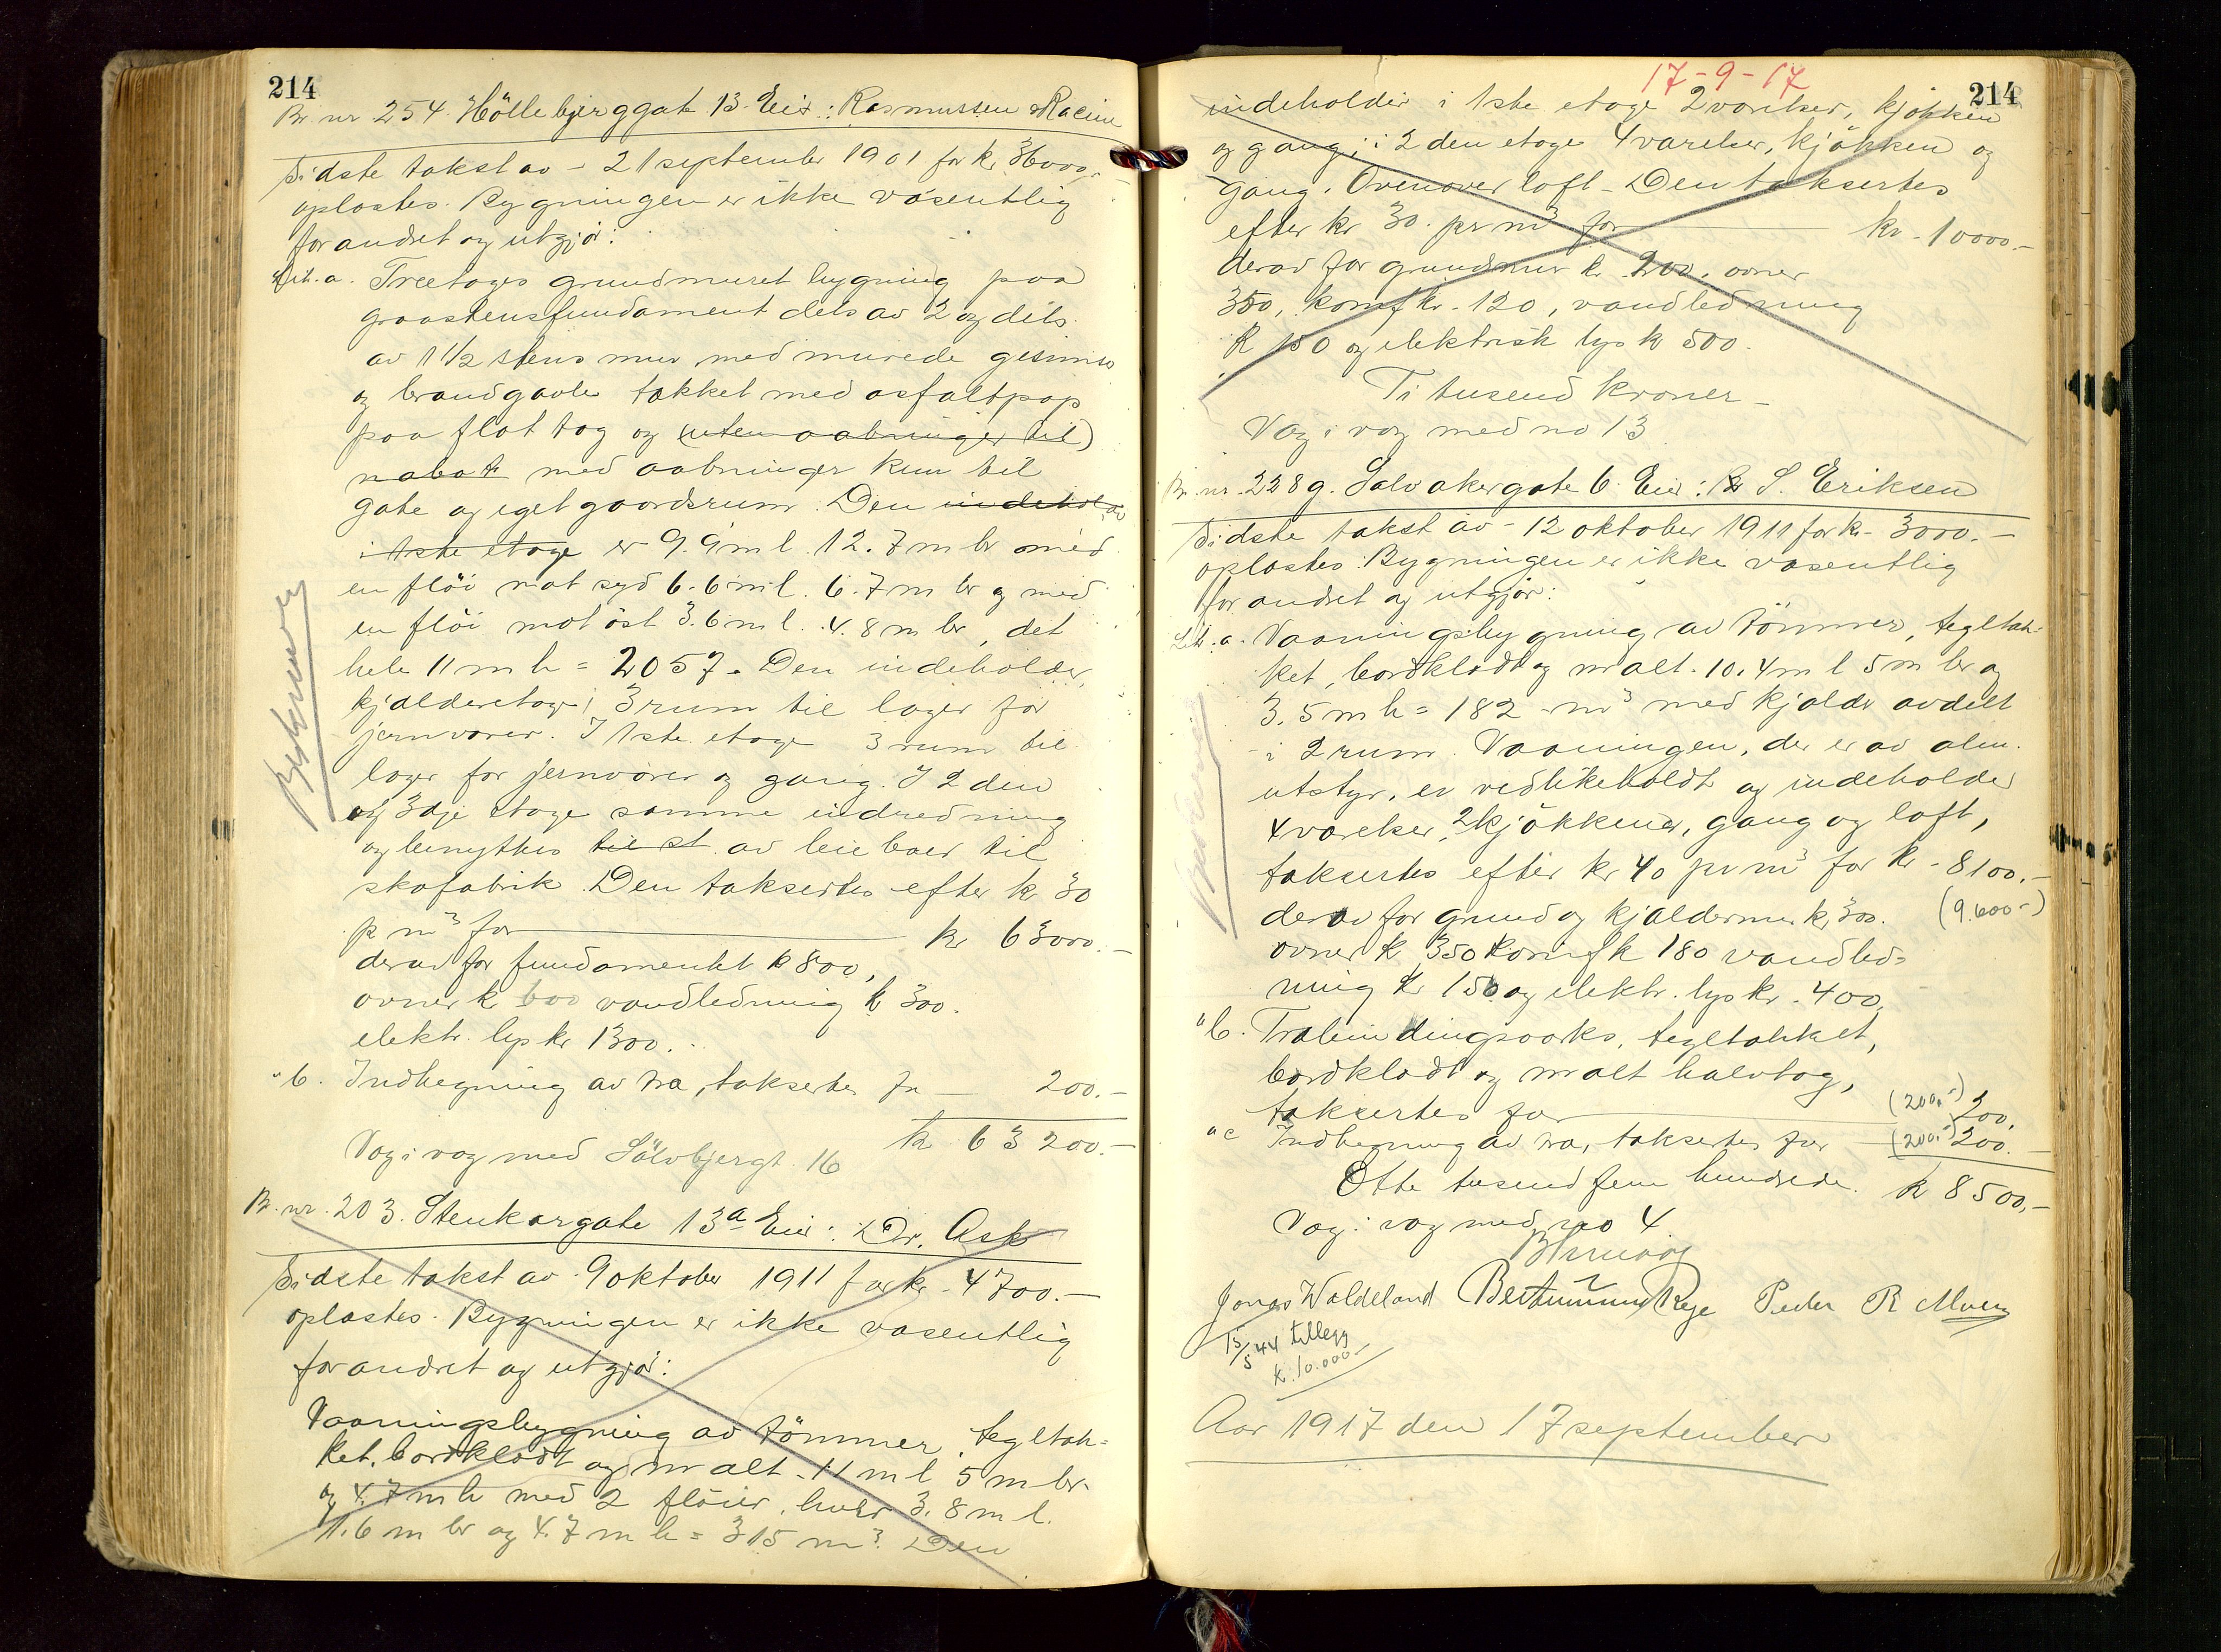 214
Br. nr 254. Höllebjerggate 13. Eier: Rasmussen & Racine
Sidste takst av - 21 september 1901 for kr. 36000.-
oplastes. Bygningen er ikke väsentlig
forandret og utgjör:
Lit. a. Treetages grundmuret bygning paa
graastensfundament dels av 2 og dels
av 1 1/2 stens mur med murede gesimser
og brandgavle täkket med asfaltpap
paa flat tag og (uten aabninger til)
nabo med aabninger kun til
gate og eget gaardsrum. Den indeholder
i 1ste etage er 9.9 m l. 12.7 m br med
en flöi mot syd 6.6 m l. 6.7 m br og med
en flöi mot öst 3.6 m l. 4.8 m br, det
hele 11 m h = 2057. Den indeholder
kjälderetage; 3 rum til lager for
jernvarer. I 1ste etage 3 rum til
lager for jernvarer og gang. I 2 den
og 3dje etage samme indredning
og benyttes til st av leieboer til
skofabrik. Den takseres efter kr 30
pr m³ for kr 63000.-
derav for fundamentet kr 800,
ovner kr 600 vandledning kr 300.
elektr. lys kr 1300.
" b. Indhegning av trä, takseres for 200.-
kr 63200.-
Väg i väg med Sölvbjergt. 16
Br. nr. 203. Stenkargate 13a Eier: Dr. Ask
Sidste takst av 9 oktober 1911 for kr. 4700.-
oplastes. Bygningen er ikke väsentlig
forandret og utgjör:
Vaaningsbygning av tömmer, tegltäk-
ket, bordklädt og malt - 11 m l 5 m br.
og 4.7 m h med 2 flöier, hver 3.8 m l.
1.6 m br og 4.7 m h = 315 m³. Den
17-9-17
214
indeholder i 1ste etage 2 värelser, kjökken
og gang; i 2 den etage 4 värelser, kjökken og
gang. Ovenover loft - Den taksertes
efter kr 30. pr m³ for kr - 10000.-
derav for grundmur kr. 200. ovner
350, komf kr. 120, vandledning
kr 150 og elektrisk lys kr 500.
Ti tusend kroner -
Väg i väg med no 13
Br. nr. 228 g. Salvakergate 6. Eier: S. Eriksen
Sidste takst av - 12 oktober 1911 for kr - 3000.-
oplastes. Bygningen er ikke väsentlig
forandret og utgjör:
Lit. a. Vaaningsbygning av tömmer, tegltäk-
ket, bordklädt og malt. 10.4 m l 5 m br og
3.5 m h = 182 m³ med kjälder avdelt
i 2 rum. Vaaningen, der er av alm.
utstyr, er vedlikeholdt og indeholder
4 värelser, 2 kjökkener, gang og loft,
taksertes efter kr 40 pr m³ for kr - 8100.-
(9.600-)
derav for grund og kjäldermur kr. 300.
ovner kr 350 komf kr 180 vandled-
ning kr 150 og elektr. lys kr. 400.
" b. Träbindingsverks, tegltäkket,
bordklädt og malt halvtag,
taksertes for (200.-) 200.
" c Indhegning av trä, takseres for (200.-) 200.-
Otte tusend fem hundrede. kr 8500.-
Väg i väg med no 4
Jonas Waldeland Peder R
15/5 44 tillegg
kr. 10.000-
Aar 1917 den 17 september